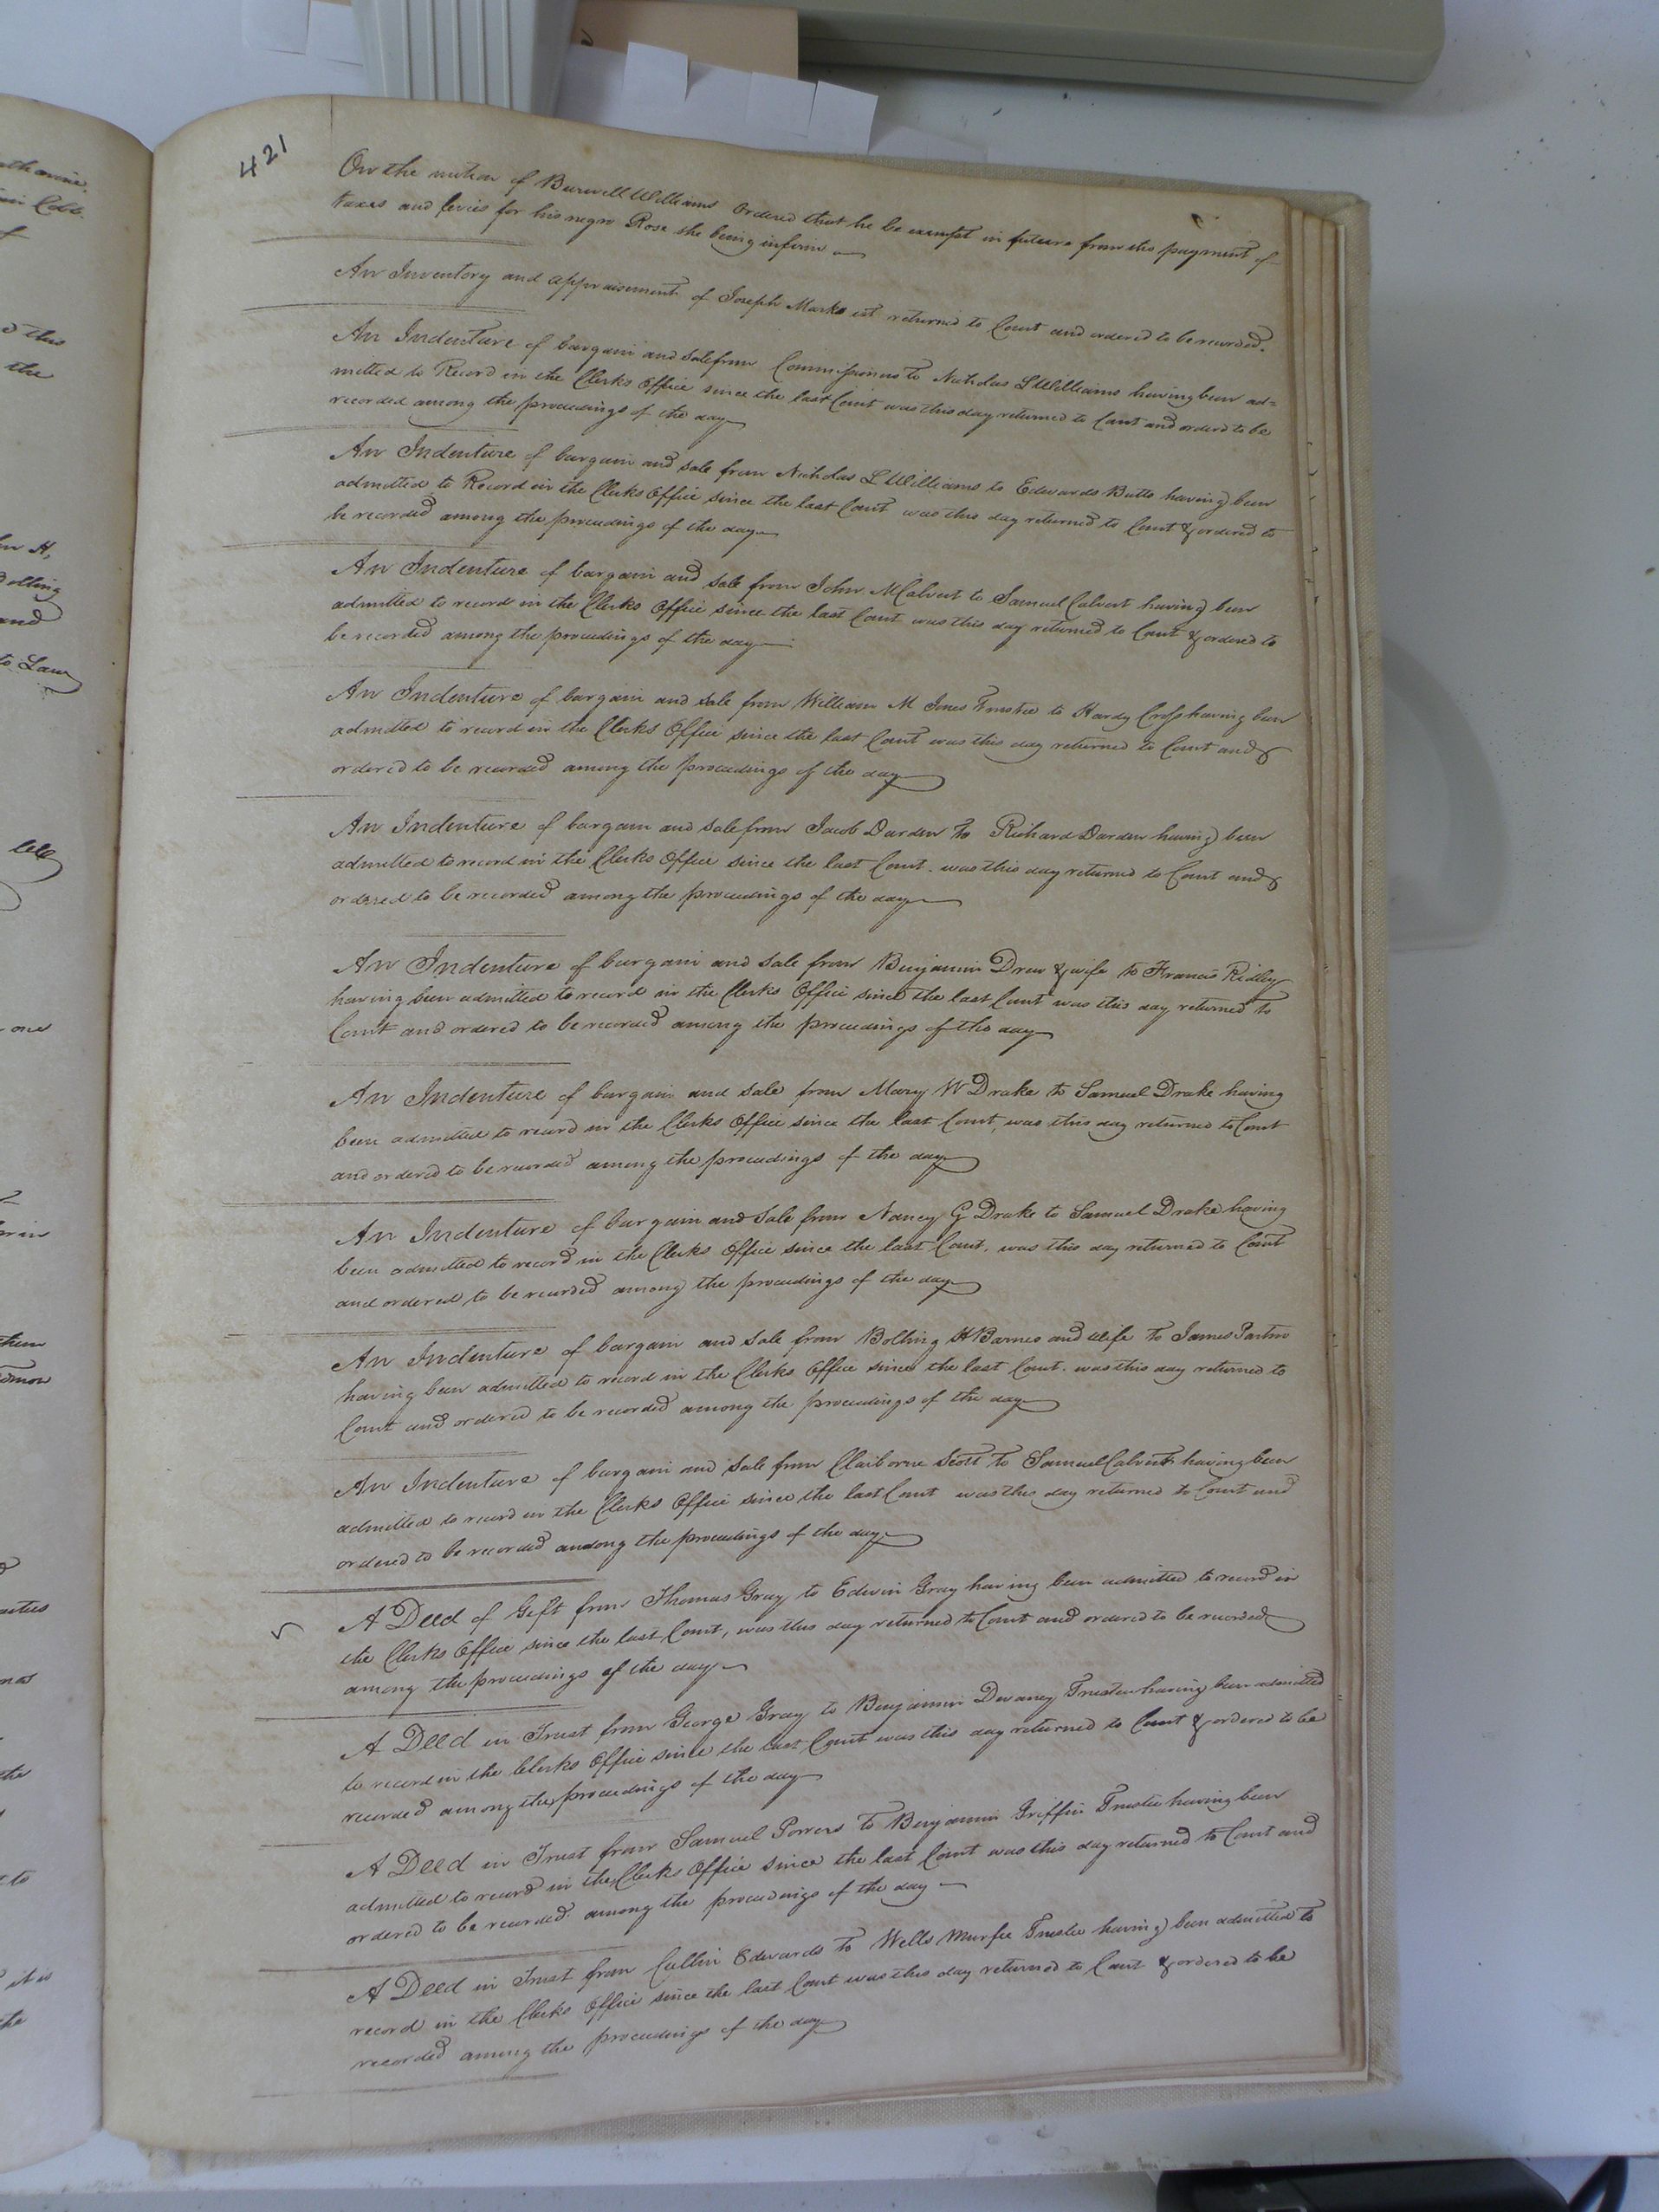 421
On the motion of Burwell Williams Ordered that he be exempt in future from the payment of
taxes and levies for his negro Rose she being infirm
An Inventory and appraisement of Joseph Marks est returned to Court and ordered to be recorded.
An Indenture of bargain and sale from Commissioners to Nicholas L Williams having been ad=
mitted to Record in the Clerks Office since the last Court was this day returned to Court and ordered to be
recorded among the proceedings of the day
An Indenture of bargain and sale from Nicholas L Williams to Edwards Butts having been
admitted to Record in the Clerks Office since the last Court was this day returned to Court & ordered to
be recorded among the proceedings of the day
An Indenture of bargain and sale from John M Calvert to Samuel Calvert having been
admitted to record in the Clerks Office since the last Court was this day returned to Court & ordered to
be recorded among the proceedings of the day
An Indenture of bargain and sale from William M Jones Trustee to Hardy Cross having been
admitted to record in the Clerks Office since the last Court was this day returned to Court and
ordered to be recorded among the proceedings of the day
An Indenture of bargain and sale from Jacob Darden to Richard Darden having been
admitted to record in the Clerks Office since the last Court. was this day returned to Court and
ordered to be recorded among the proceedings of the day
An Indenture of bargain and sale from Benjamin Drew & wife to Francis Ridley
having been admitted to record in the Clerks Office since the last Court was this day returned to
Court and ordered to be recorded among the proceedings of the day
An Indenture of bargain and sale from Mary W Drake to Samuel Drake having
been admitted to record in the Clerks Office since the last Court, was this day returned to Court
and ordered to be recorded among the proceedings of the day
An Indenture of bargain and sale from Nancy G Drake to Samuel Drake having
been admitted to record in the Clerks Office since the last Court, was this day returned to Court
and ordered to be recorded among the proceedings of the day
An Indenture of bargain and sale from Bolling H Barnes and Wife to James Parton
having been admitted to record in the Clerks Office since the last Court. was this day returned to
Court and ordered to be recorded among the proceedings of the day
An Indenture of bargain and sale from Claiborne Scott to Samuel Calvert having been
admitted to record in the Clerks Office since the last Court was this day returned to Court and
ordered to be recorded among the proceedings of the day
A Deed of Gift from Thomas Gray to Edwin Gray having been admitted to record in
the Clerks Office since the last Court, was this day returned to Court and ordered to be recorded
among the proceedings of the day
A Deed in Trust from George Gray to Benjamin Devaney Trustee having been admitted
to record in the Clerks Office since the last Court was this day returned to Court & ordered to be
recorded among the proceedings of the day
A Deed in Trust from Samuel Powers to Benjamin Griffin Trustee having been
admitted to record in the Clerks Office since the last Court was this day returned to Court and
ordered to be recorded among the proceedings of the day
A Deed in Trust from Cullin Edwards to Wells Murfee Trustee having been admitted to
record in the Clerks Office since the last Court was this day returned to Court & ordered to be
recorded among the proceedings of the day